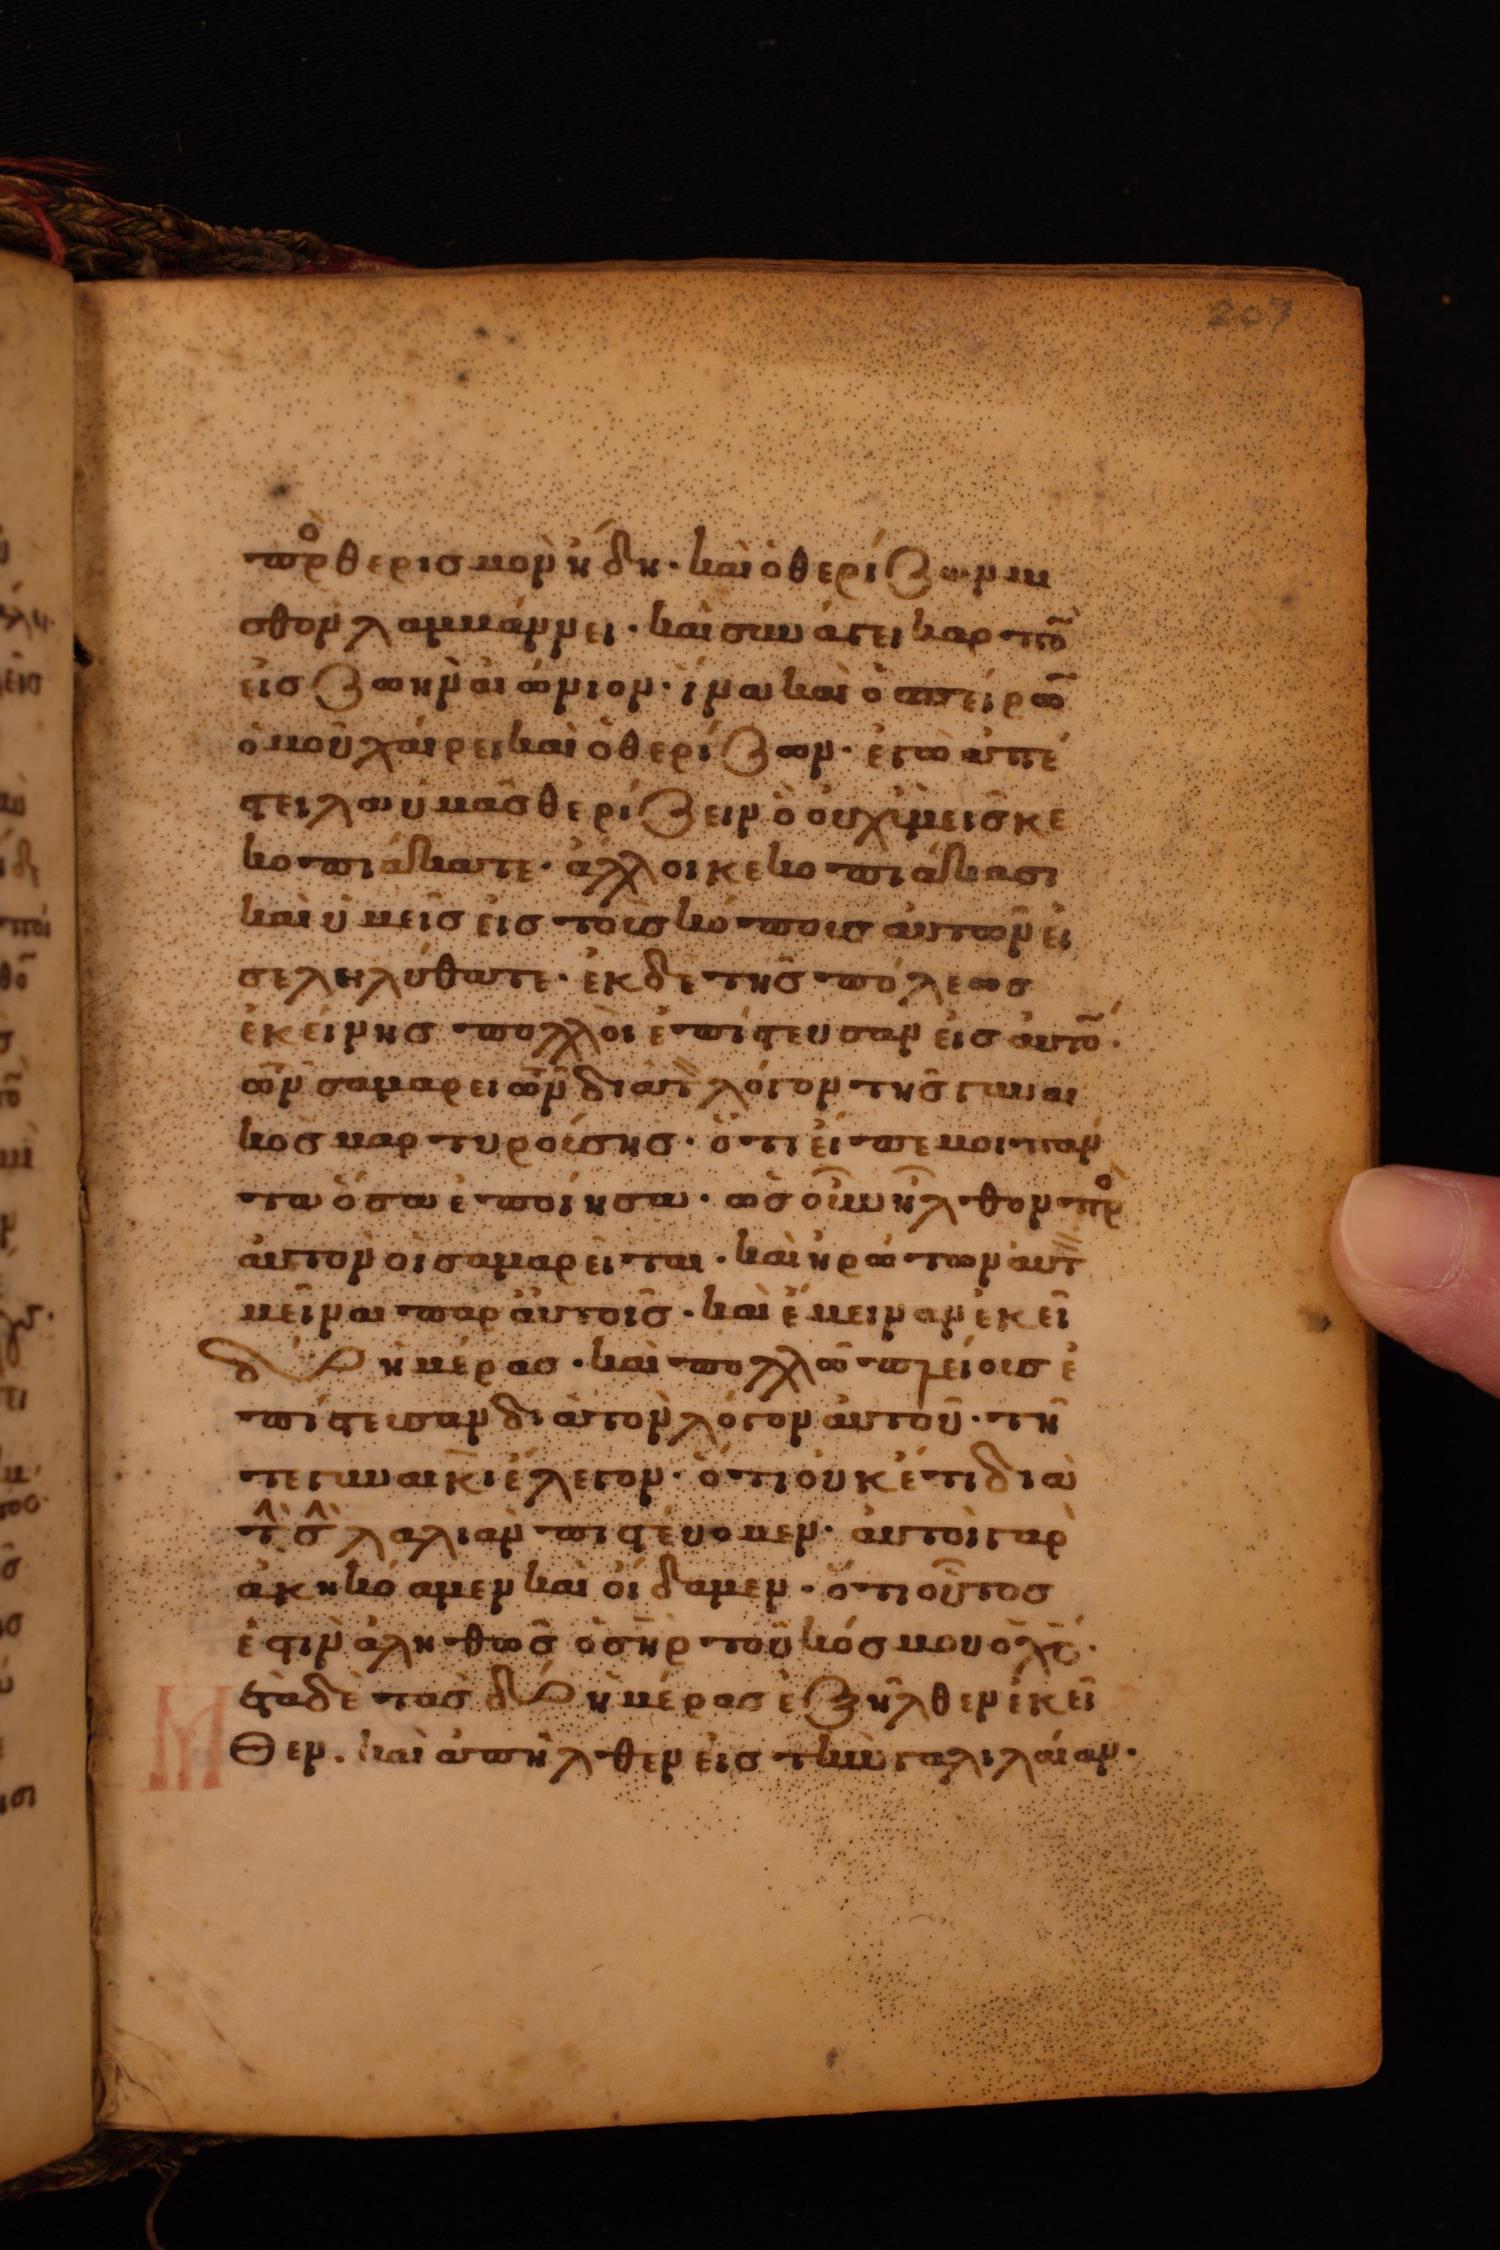 207
πρὸ θερισμὸν ἤδη· καὶ ὁ θερίζων μι
σθὸν λαμμάννει· καὶ συνάγει καρπὸ̄
εἰς ζωὴν αἰώνιον· ἵνα καὶ ὁ σπείρω̄
ὁμοῦ χαίρει καὶ ὁ θερίζων· ἐγὼ ἀπέ
στειλα ὑμᾶς θερίζειν ὃ οὐχ ὑμεῖς κε
κοπιάκατε· ἄλλοι κεκοπιάκασι
καὶ ὑμεῖς εἰς τοὺς κόποις αὐτῶν εἰ
σεληλύθατε· ἐκ δὲ τῆς πόλεως
ἐκείνης πολλοὶ ἐπίστευσαν εἰς αὐτό̄·
ῶν σαμαρειῶν διὰ τ̀ λόγον τῆς γυναι
κὸς μαρτυροίσης· ὅτι εἶπε μοι παν
τα ὅσα ἐποίησα· ὡς οὖν ἦλθον πρ̀ο
αὐτὸν οἱ σαμαρεῖται· καὶ ἠρώτων αὐτ
μεῖναι παρ αὐτοῖς· καὶ ἔμειναν ἐκεῖ
δύο ἡμέρας· καὶ πολλῶ πλείοις ἐ
πίστευσαν διὰ τὸν λόγον αὐτοῦ· τῆ
τε γυναικὶ ἔλεγον· ὅτι οὐκέτι διὰ
τ̀ σ̀ λαλιὰν πιστεύομεν· αὐτοὶ γὰρ
ἀκηκόαμεν καὶ οἴδαμεν· ὅτι οὗτος
ἐστιν ἀληθῶς ὁ σ̅η̅ρ τοῦ κόσμου ὁ χ̅ς̅·
τὰ δὲ τὰς δύο ἡμέρας ἐξῆλθεν ἐκεῖ
Μ
θεν. καὶ ἀπῆλθεν εἰς τὴν γαλιλαίαν·